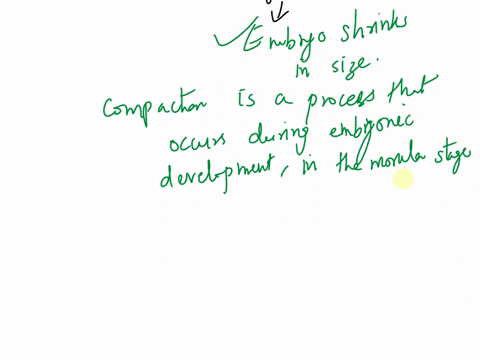 Embryo shrinks
in size.
Compaction is a process that
occurs during embryonic
development, in the morula stage